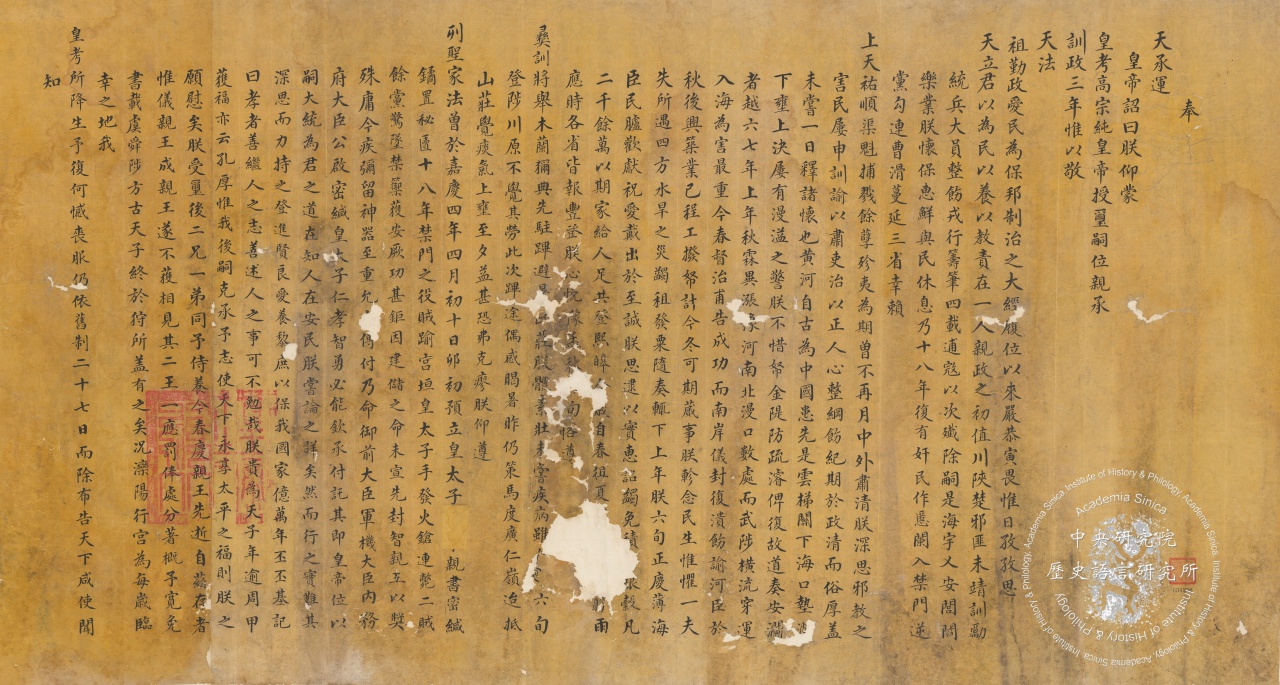 奉
天承運
皇帝詔曰朕仰蒙
皇考高宗純皇帝授璽嗣位親承
訓政三年惟以敬
天法
祖勤政愛民為保邦制治之大經履位以來嚴恭寅畏惟日孜孜思
天立君以為民以養以教責在一人親政之初值川陝楚邪匪未靖訓勵
統兵大員整飭戎行籌筆四載逋寇以次殲除嗣是海宇乂安閭閻
樂業朕懷保惠鮮與民休息乃十八年復有奸民作慝闌入禁門逆
黨勾連曹滑蔓延三省幸賴
上天祐順渠魁捕戮餘孽殄夷為期曾不再月中外肅清朕深思邪教之
害民屢申訓諭以肅吏治以正人心整綱飭紀期於政清而俗厚蓋
未嘗一日釋諸懷也黃河自古為中國患先是雲梯關下海口墊
下壅上決屢有漫溢之警朕不惜帑金隄防疏濬俾復故道奏安瀾
者越六七年上年秋霖異漲豫河南北漫口數處而武陟橫流穿運
入海為害最重今春督治甫告成功而南岸儀封復潰飭諭河臣於
秋後興築業已程工撥帑計今冬可期蕆事朕軫念民生惟懼一夫
失所遇四方水旱之災蠲租發粟隨奏輒下上年朕六旬正慶薄海
臣民臚歡獻祝愛戴出於至誠朕思逮以實惠詔蠲免積 穀凡
二千餘萬以期家給人足共登熙皞 自春徂夏 雨
應時各省皆報豐登朕心悅豫 旬恪遵
彞訓將舉木蘭獮典先駐蹕避暑山莊朕體素壯未嘗疾病雖 六旬
登陟川原不覺其勞此次蹕途偶感暍暑昨仍策馬度廣仁嶺迨抵
山莊覺痰氣上壅至夕益甚恐弗克瘳朕仰遵
列聖家法曾於嘉慶四年四月初十日卯初預立皇太子 親書密緘
鐍置秘匱十八年禁門之役賊踰宮垣皇太子手發火鎗連斃二賊
餘黨驚墜禁籞獲安厥功甚鉅因建儲之命未宣先封智親王以獎
殊庸今疾彌留神器至重允 付乃命御前大臣軍機大臣內務
府大臣公啟密緘皇太子仁孝智勇必能欽承付託其即皇帝位以
嗣大統為君之道在知人在安民朕嘗論之詳矣然而行之實難其
深思而力持之登進賢良愛養黎庶以保我國家億萬年丕丕基記
曰孝者善繼人之志善述人之事可不勉哉朕貴為天子年逾周甲
獲福亦云孔厚惟我後嗣克承予志使天下永享太平之福則朕之
願慰矣朕受璽後二兄一弟同予侍養今春慶親王先逝自茲存者
惟儀親王成親王遂不獲相見其二王 一應罰俸處分著概予寬免
書載虞舜陟方古天子終於狩所蓋有之矣況灤陽行宮為每歲臨
幸之地我
皇考所降生予復何憾喪服仍依舊制二十七日而除布告天下咸使聞
知
中央研究院
歷史語言研究所
Academia Sinica
Institute of History & Philology
Institute of History & Philology, Academia Sinica